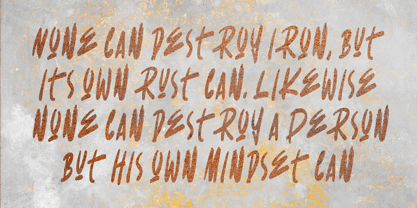 NONE CAN DESTROY IRON, BUT
ITS OWN RUST CAN. LIKEWISE
NONE CAN DESTROY A PERSON
BUT HIS OWN MINDSET CAN